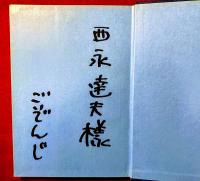 西永達夫様
ごいでんじ